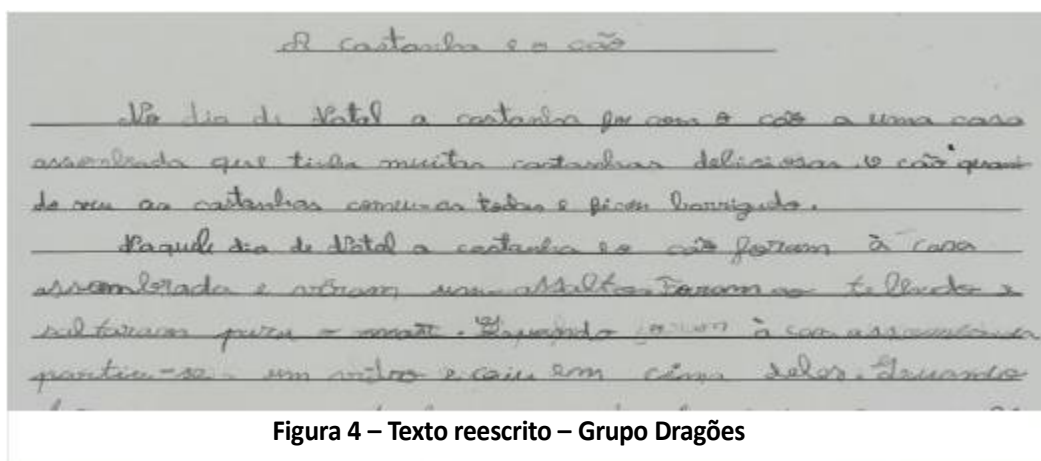 A castanha e o cão
No dia de Natal a castanha foi com o cão a uma casa
assombrada que tinha muitas castanhas deliciosas. O cão quan-
do viu as castanhas comeu-as todas e ficou barrigudo.
Naquele dia de Natal a castanha e o cão foram à casa
assombrada e viram um assalto. Foram ao telhado e
saltaram para o . Quando foram à casa assombrada
partiu-se um vidro e caiu em cima deles. Quando
Figura 4 – Texto reescrito – Grupo Dragões